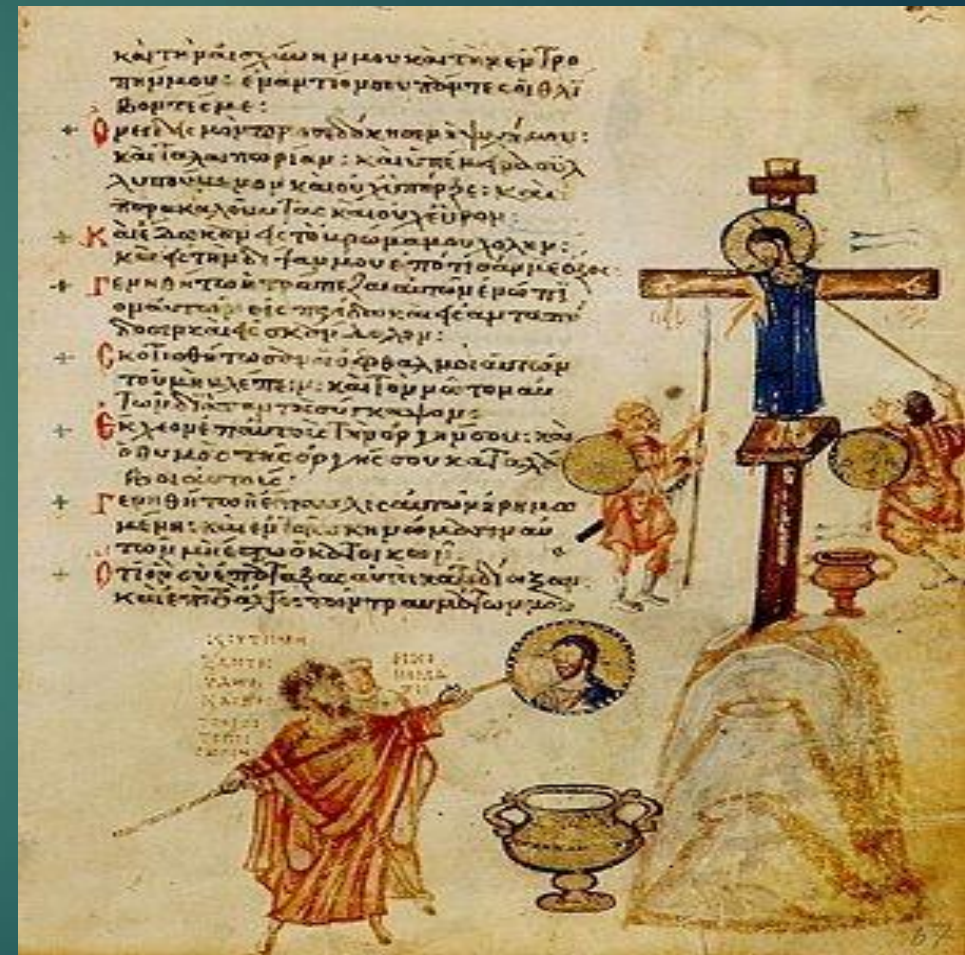 καὶ τὴν αἰσχύνην μου καὶ τὴν ἐντρο
πήν μου: ἐναντίον σου πάντες οἱ θλί
βοντές με:
Ὀνειδισμὸν προσεδόκησεν ἡ ψυχή μου:
καὶ ταλαιπωρίαν: καὶ ὑπέμεινα συλ
λυπούμενον καὶ οὐχ ὑπῆρξε: καὶ
παρακαλοῦντας καὶ οὐχ εὗρον:
Καὶ ἔδωκαν εἰς τὸ βρῶμά μου χολήν:
καὶ εἰς τὴν δίψαν μου ἐπότισάν με ὄξος:
Γενηθήτω ἡ τράπεζα αὐτῶν ἐνώπι
ον αὐτῶν εἰς παγίδα καὶ εἰς ἀνταπό
δοσιν καὶ εἰς σκάνδαλον:
Σκοτισθήτωσαν οἱ ὀφθαλμοὶ αὐτῶν
τοῦ μὴ βλέπειν: καὶ τὸν νῶτον αὐ
τῶν διὰ παντὸς σύγκαμψον:
Ἔκχεον ἐπ αὐτοὺς τὴν ὀργήν σου: καὶ
ὁ θυμὸς τῆς ὀργῆς σου καταλά
βοι αὐτούς:
Γενηθήτω ἡ ἔπαυλις αὐτῶν ἠρημω
μένη: καὶ ἐν τοῖς σκηνώμασιν αὐ
τῶν μὴ ἔστω ὁ κατοικῶν.
Ὅτι ὃν σὺ ἐπάταξας αὐτοὶ κατεδίωξαν:
καὶ ἐπὶ τὸ ἄλγος τῶν τραυμάτων μου
67